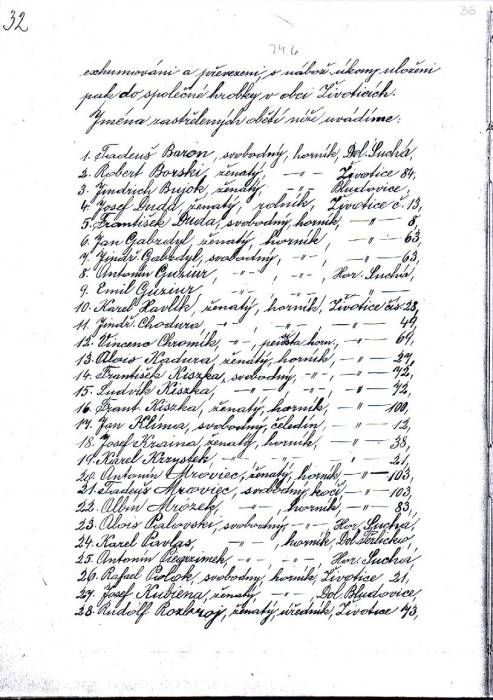 32
36
746
exhumováni a převezeni, s nábož. úkony uloženi
pak do společné hrobky v obci Životicích.
Jména zastřelených obětí níže uvádíme:
1. Tadeuš Baron, svobodný, horník, Dol. Suchá,
2. Robert Borski, ženatý, -"- Životice 84,
3. Jindřich Bujok, ženatý, Bludovice,
4. Josef Duda, ženatý, rolník, Životice č. 13,
5. František Duda, svobodný, horník, -"- 8,
6. Jan Gabzdyl, ženatý, horník, -"- 63,
7. Jindř. Gabzdyl, svobodný, -"-, -"- 63,
8. Antonín Guziur, -"-, -"-, Hor. Suchá,
9. Emil Guziur, -"-, -"-, -"-
10. Karel Havlík, ženatý, horník, Životice čís. 28,
11. Jindř. Chodura, -"-, -"-, -"- 49,
12. Vincenc Chromík, -"-, hor., -"- 69,
13. Alois Kadura, ženatý, horník, -"- 27,
14. František Kiszka, svobodný, -"-, -"- 72,
15. Ludvík Kiszka, -"-, -"-, -"- 72,
16. Frant. Kiszka, ženatý, horník, -"- 100,
17. Jan Klima, svobodný, čeledín, -"- 12,
18. Josef Kraina, ženatý, horník, -"- 38,
19. Karel Krzystek -"- -"- -"- 21,
20. Antonín Mrowiec, ženatý, horník -"- 103,
21. Tadeuš Mrowiec, svobodný, kočí -"- 103,
22. Albín Mrózek, -"-, horník, -"- 83,
23. Alois Palovski, svobodný, -"- Hor. Suchá,
24. Karel Pavlas, -"-, horník, Dol. Těrlicko,
25. Antonín Piegrzimek -"- -"- Hor. Suchá,
26. Rafael Polok, svobodný, horník, Životice 21,
27. Josef Kubiena, ženatý, -"- Dol. Bludovice,
28. Rudolf Rozbroj, ženatý, úředník, Životice 73,